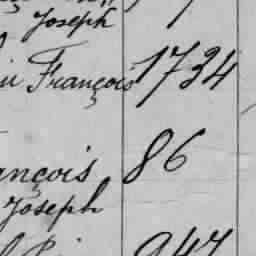 Joseph
François 1734
86
nçois
Joseph
947